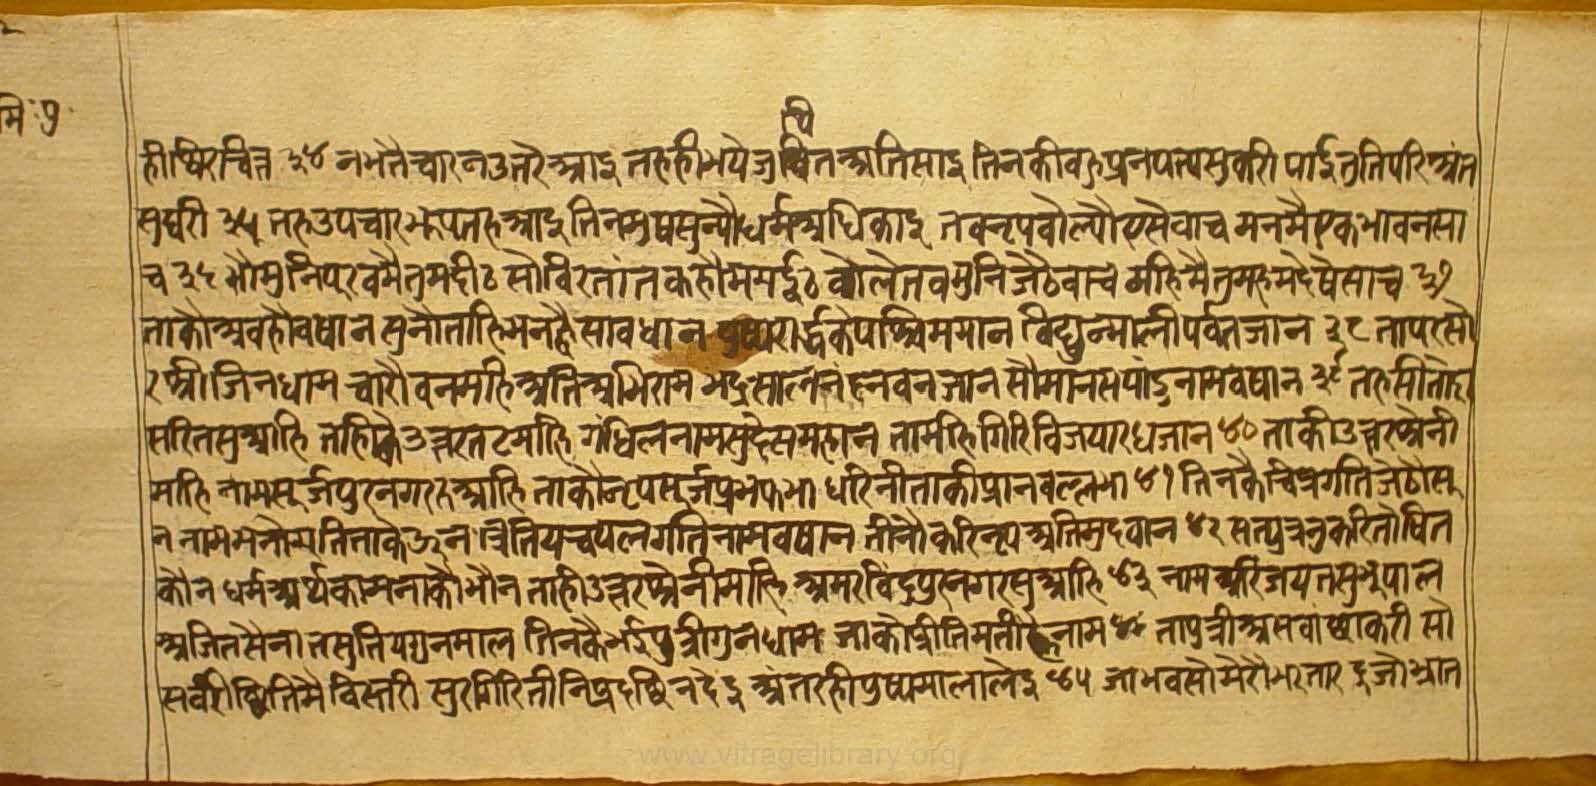 मिः१
षि
ही थिरचित्त ३४ नभतै चारन उतरे आइ तहही भये जु षित अतिसाइ तिनकी वहु प्रनपत्य सु करी पाई नुति परि अंत
सुष्वरी ३५ तह उपचार भूपतह आइ तिन मुष सुन्यौ धर्म अधिकाइ तव नृप वोल्यौ एसे वाच मन मै एक भावन सा
च ३६ भौ मुनि पूरव मै तुम दीठ सो विरतांत कहौ मम ईठ वोले तव मुनि जेठे वाच महि मै तुम हमदेषे साच ३७
ताकौ अव हौ वषान सुनौ ताहि मन ह्वै सावधान पुष्परार्द्धके पश्चिम मयान विद्युन्माली पर्वत जान ३८ तापरसो
र श्री जिनधाम च्वारौ वन महि अति अभिराम भद्रसाल नंदनवन जान सौमानस पांडु नाम वषान ३९ तह सीतोदा
सरित सु आहि तहि के उत्तर तट माहि गंधिल नाम सुदेस महान ता महि गिरि विजयारध जान ४० ताकी उत्तर श्रेनी
माहि नाम सूर्जपुर नगर आहि ताकौ नृप सूर्जप्रभ फभा धारिनी ताकी प्रानवल्लभा ४१ तिनकै चित्रगति जेठौ सू
न नाम मनोगति ताके ऊन त्रितिय चपलगति नाम वषान तीनौ करि नृप अति मुदवान ४२ सत्पुत्रनु करि तोषित
कौन धर्म अर्थ काम ना कौ भौन ताही उत्तर श्रेनी माहि अमरविंदपुर नगर सु आहि ४३ नाम अरिंजय त सु भूपाल
अजितसेना तसु तिय गुनमाल तिनकै भई पुत्री गुनधाम जाकौ प्रीतिमती है नाम ४४ ता पुत्री अस वांछा करी सो
सर्वरी थिति मै विस्तरी सुरगिरि तीनि प्रदछिन देइ अंतरही पुष्पमाला लेइ ४५ जो भव सो मेरौ भरतार दूजो भ्रात
www.vitragelibrary.org